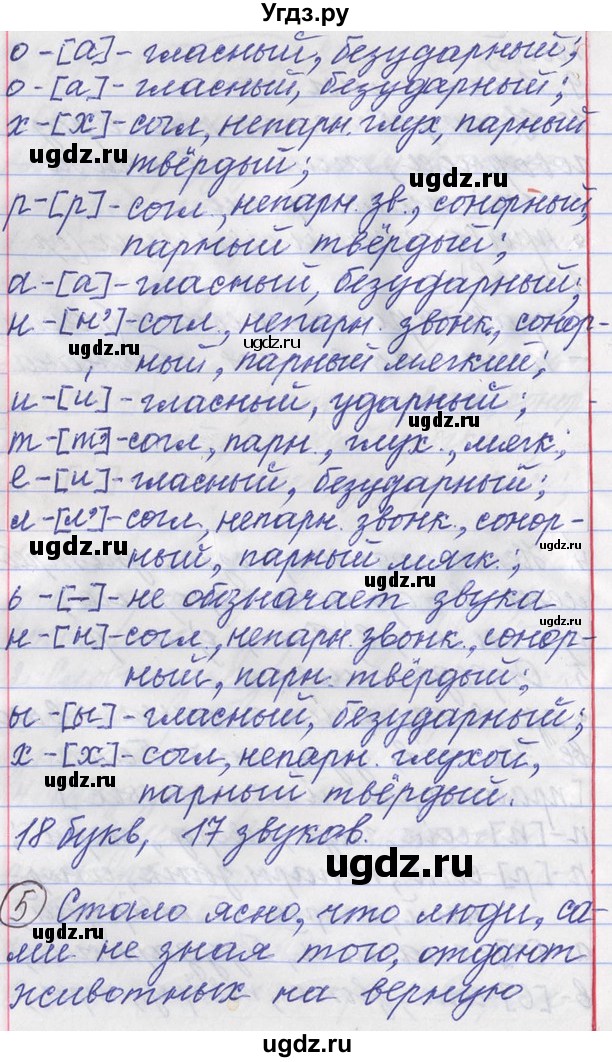 Угдз.ру
о-[а]-гласный, безударный;
о-[а]-гласный, безударный;
х-[х]-согл, непарн. глух, парный
ugdz.ru твёрдый; ugdz.ru
р-[р]-согл., непарн. зв., сонорный,
ugdz.ru
парный твёрдый;
а-[а]-гласный, безударный;
н-[н']-согл., непарн. звонк, сонор-
ugdz.ru ный, парный мягкий; ugdz.ru
и-[и]-гласный, ударный;
т-[т']-согл, парн., глух., мягк;
ugdz.ru
е-[и]-гласный, безударный;
л-[л']-согл, непарн. звонк., сонор-
ugdz.ru ный, парный мягк.; ugdz.ru
ь-[–]-не обозначает звука
ugdz.ru
н-[н]-согл., непарн. звонк., сонор-
ный, парн. твёрдый;
ugdz.ru
ы-[ы]-гласный, безударный;
х-[х]-согл, непарн. глухой,
ugdz.ru ugdz.ru
парный твёрдый.
18 букв, 17 звуков.
ugdz.ru
5 Стало ясно, что люди, са-
ugdz.ru
ми не зная того, отдают
животных на верную
ugdz.ru
Угдз.ру